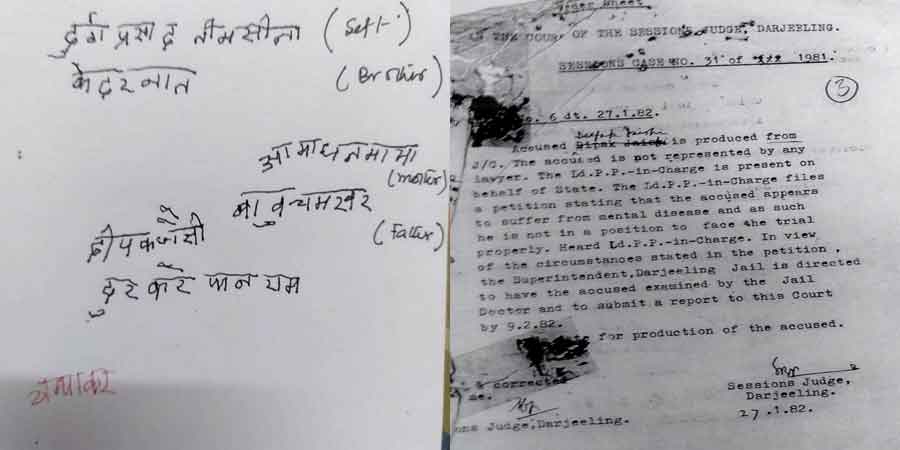 दुर्गा प्रसाद तीमसीना (Self)
केदरनात (Brother)
आमा धनमाया
(mother)
(Father)
दीपक जैसी
Order Sheet
IN THE COURT OF THE SESSIONS JUDGE, DARJEELING.
SESSIONS CASE NO. 31 of 1981.
3
No. 6 dt. 27.1.82.
Deepak Jaishi
Accused Dipak Jaishi is produced from
J/C. The accused is not represented by any
lawyer. The Ld.P.P.-in-Charge is present on
behalf of State. The Ld.P.P.-in-Charge files
a petition stating that the accused appears
to suffer from mental disease and as such
he is not in a position to face the trial
properly. Heard Ld.P.P.-in-Charge. In view
of the circumstances stated in the petition,
the Superintendent,Darjeeling Jail is directed
to have the accused examined by the Jail
Doctor and to submit a report to this Court
by 9.2.82.
for production of the accused.
& corrected
me.
Sessions Judge,
Darjeeling.
27.1.82.
ons Judge,Darjeeling.